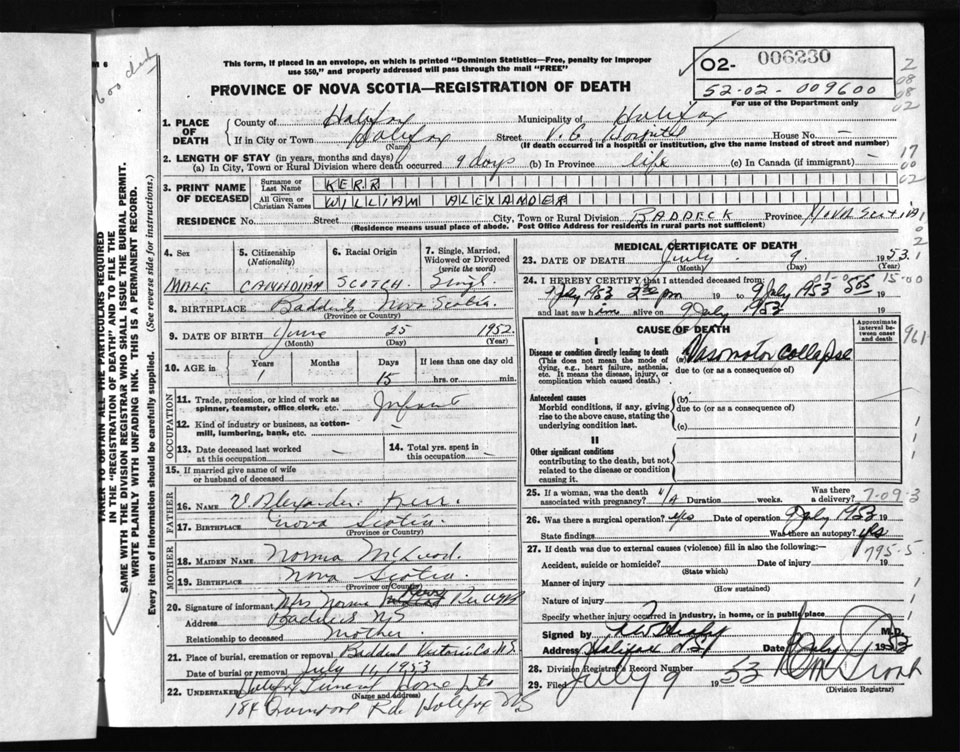 This form, if placed in an envelope, on which is printed "Dominion Statistics—Free, penalty for improper
use $50," and properly addressed will pass through the mail "FREE"
PROVINCE OF NOVA SCOTIA—REGISTRATION OF DEATH
O2- 006230
52-02-009600
For use of the Department only
2
08
08
02
17
00
02
TAKEN TO OBTAIN ALL THE PARTICULARS REQUIRED
IN THE "REGISTRATION OF DEATH" AND TO FILE THE
SAME WITH THE DIVISION REGISTRAR WHO SHALL ISSUE THE BURIAL PERMIT.
WRITE PLAINLY WITH UNFADING INK. THIS IS A PERMANENT RECORD.
Every item of Information should be carefully supplied. (See reverse side for instructions.)
1. PLACE OF DEATH
County of Halifax Municipality of Halifax
If in City or Town Halifax Street V. G. Hospital House No. —
(Name) (If death occurred in a hospital or institution, give the name instead of street and number)
2. LENGTH OF STAY (in years, months and days)
(a) In City, Town or Rural Division where death occurred 9 days (b) In Province life (c) In Canada (if immigrant) —
3. PRINT NAME OF DECEASED
Surname or Last Name KERR
All Given or Christian Names WILLIAM ALEXANDER
RESIDENCE No. Street City, Town or Rural Division BADDECK Province NOVA SCOTIA
(Residence means usual place of abode. Post Office Address for residents in rural parts not sufficient)
4. Sex
MALE
5. Citizenship (Nationality)
CANADIAN
6. Racial Origin
SCOTCH
7. Single, Married, Widowed or Divorced (write the word)
Single
8. BIRTHPLACE Baddeck Nova Scotia
(Province or Country)
9. DATE OF BIRTH June 25 1952
(Month) (Day) (Year)
10. AGE in Years Months Days If less than one day old
1 15 hrs. or min.
OCCUPATION
11. Trade, profession, or kind of work as spinner, teamster, office clerk, etc. Infant
12. Kind of industry or business, as cotton-mill, lumbering, bank, etc. —
13. Date deceased last worked at this occupation —
14. Total yrs. spent in this occupation —
15. If married give name of wife or husband of deceased
FATHER
16. NAME Kerr
17. BIRTHPLACE Nova Scotia
(Province or Country)
MOTHER
18. MAIDEN NAME Norma McLeod
19. BIRTHPLACE Nova Scotia
(Province or Country)
20. Signature of informant Mrs Norma Kerr
Address Baddeck NS
Relationship to deceased Mother
21. Place of burial, cremation or removal Baddeck Victoria Co N.S.
Date of burial or removal July 11, 1953
22. UNDERTAKER Funeral Home
(Name and Address)
Rd. Halifax NS
MEDICAL CERTIFICATE OF DEATH
23. DATE OF DEATH July 9 1953
(Month) (Day) (Year)
24. I HEREBY CERTIFY that I attended deceased from
July 1953 19 to 9 July 1953 19
and last saw him alive on 9 July 1953 19
15-00
CAUSE OF DEATH
Approximate interval between onset and death
961
I
Disease or condition directly leading to death
(This does not mean the mode of dying, e.g., heart failure, asthenia, etc. It means the disease, injury, or complication which caused death.)
(a) Vasomotor collapse
due to (or as a consequence of)
Antecedent causes
Morbid conditions, if any, giving rise to the above cause, stating the underlying condition last.
(b)
due to (or as a consequence of)
(c)
II
Other significant conditions
contributing to the death, but not related to the disease or condition causing it.
25. If a woman, was the death associated with pregnancy? N/A Duration weeks. Was there a delivery?
7-09-3
26. Was there a surgical operation? yes Date of operation 9 July 1953
State findings Was there an autopsy? yes
27. If death was due to external causes (violence) fill in also the following:—
795-5
Accident, suicide or homicide? Date of injury 19
(State which)
Manner of injury
(How sustained)
Nature of injury
Specify whether injury occurred in industry, in home, or in public place
Signed by M.D.
Address Halifax NS Date July 1953
28. Division Registrar's Record Number
29. Filed July 9 1953
(Division Registrar)